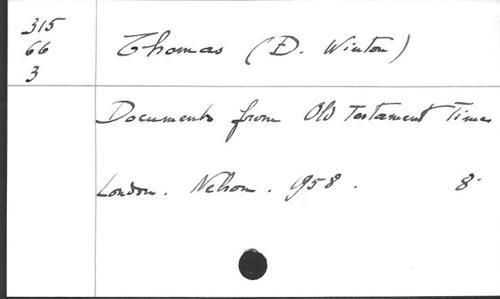 315
66
3
Thomas (D. Winton)
Documents from Old Testament Times
London. Nelson. 1958. 8.